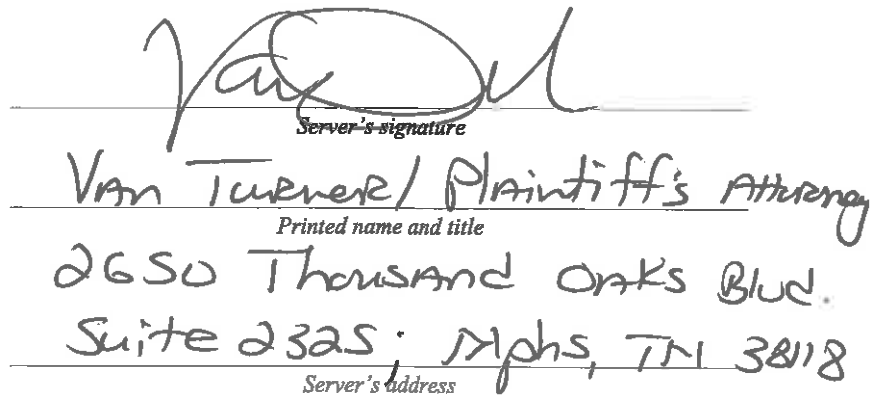 Server's signature
Van Turner/ Plaintiff's Attorney
Printed name and title
2650 Thousand Oaks Blvd.
Suite 2325; Mphs, TN 38118
Server's address